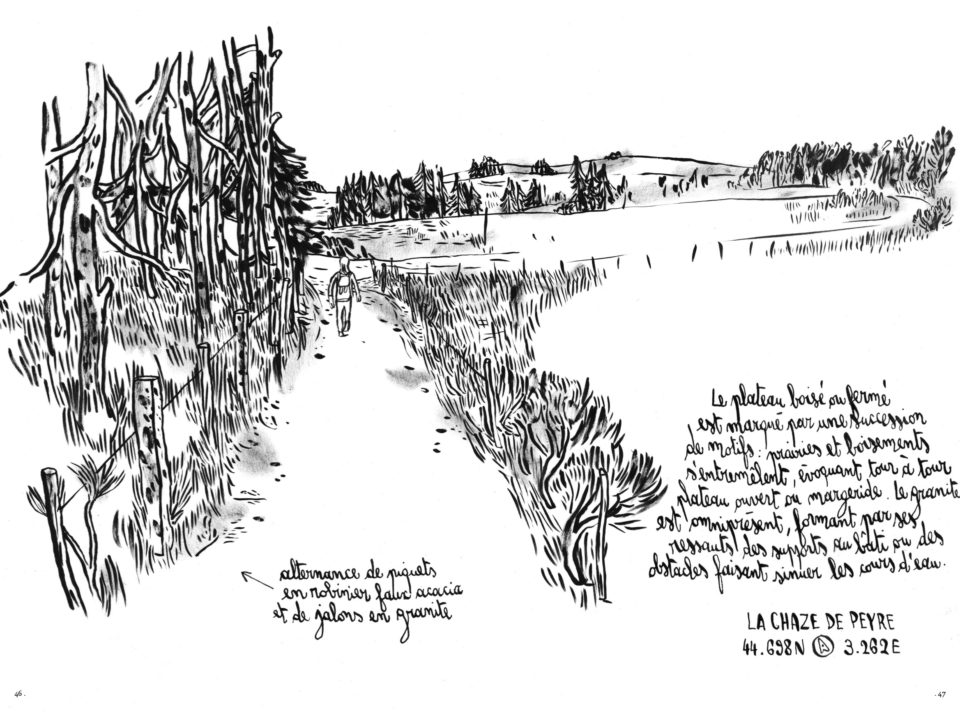 Le plateau boisé ou fermé
est marqué par une succession
de motifs : prairies et boisements
s'entremêlent, évoquant tour à tour
plateau ouvert ou margeride. Le granite
est omniprésent, formant par ses
ressauts des supports au bâti ou des
obstacles faisant sinuer les cours d'eau.
alternance de piquets
en robinier faux acacia
et de jalons en granite
LA CHAZE DE PEYRE
44.698N A 3.262E
46.
.47